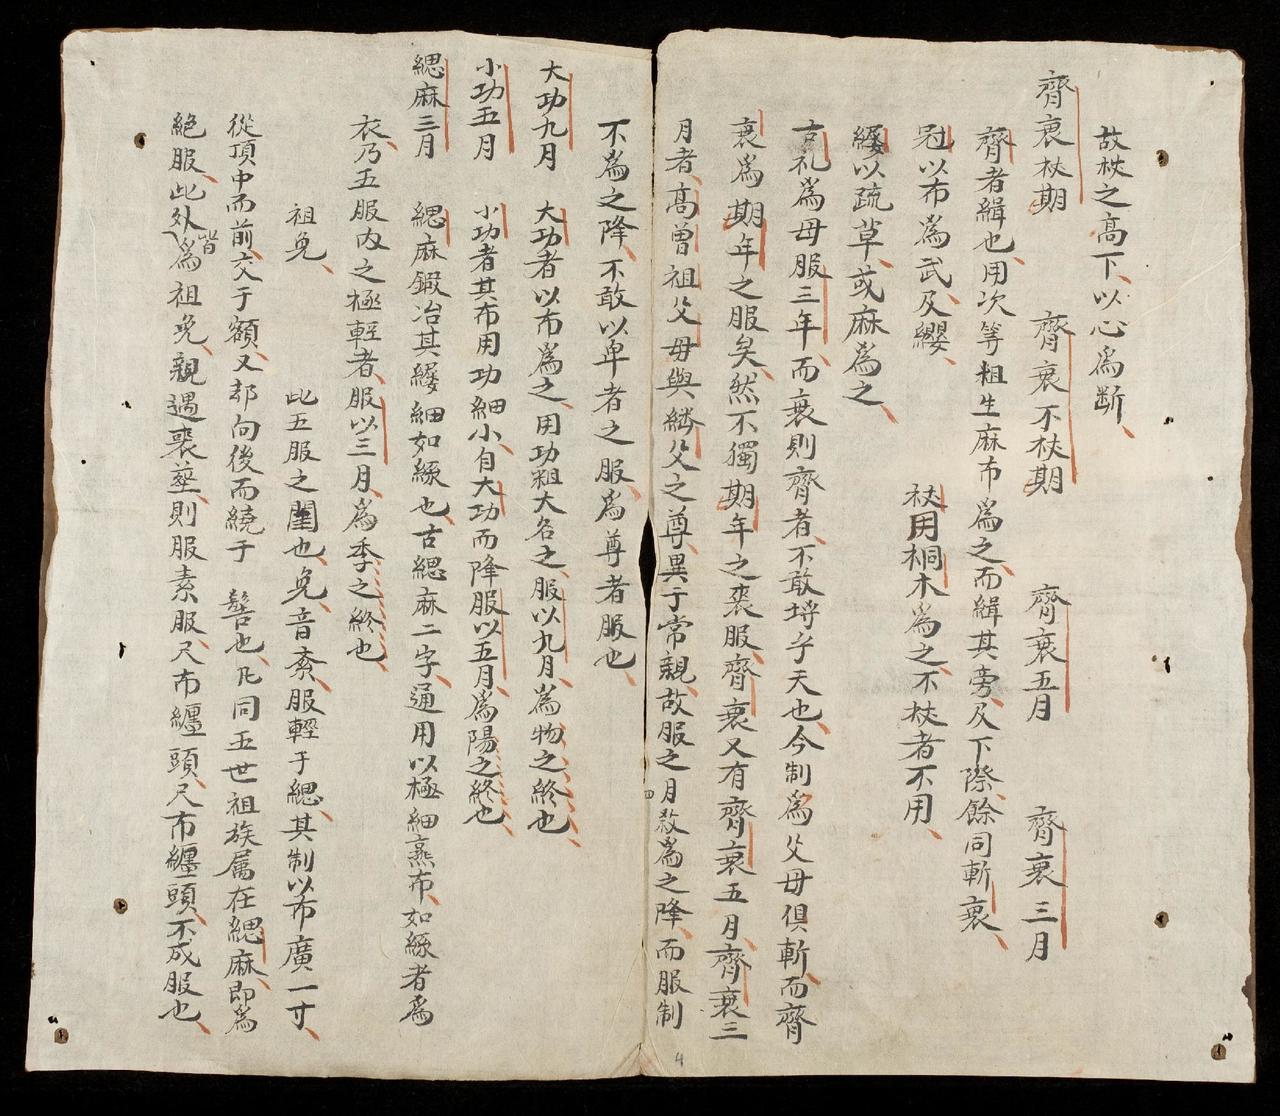 故杖之高下以心為斷
齊衰杖期　齊衰不杖期　齊衰五月　齊衰三月
齊者緝也用次等粗生麻布為之而緝其旁及下際餘同斬衰
冠以布為武及纓　杖用桐木為之不杖者不用
纓以疏草或麻為之
古礼為母服三年而衰則齊者不敢埒乎天也今制為父母俱斬而齊
衰為期年之服矣然不獨期年之喪服齊衰又有齊衰五月齊衰三
月者高曾祖父母與繼父之尊異于常親故服之月数為之降而服制
不為之降不敢以卑者之服為尊者服也
大功九月　大功者以布為之用功粗大名之服以九月為物之終也
小功五月　小功者其布用功細小自大功而降服以五月為陽之終也
緦麻三月　緦麻鍛冶其縷細如絲也古緦麻二字通用以極細熹布如絲者為
衣乃五服內之極輕者服以三月為季之終也
祖免　此五服之闰也免音紊服輕于緦其制以布廣一寸
從頂中而前交于額又却向後而繞于　髻也凡同五世祖族属在緦麻即為
絶服此外皆為祖免親遇喪塟則服素服尺布纏頭尺布纏頭不成服也
四
4